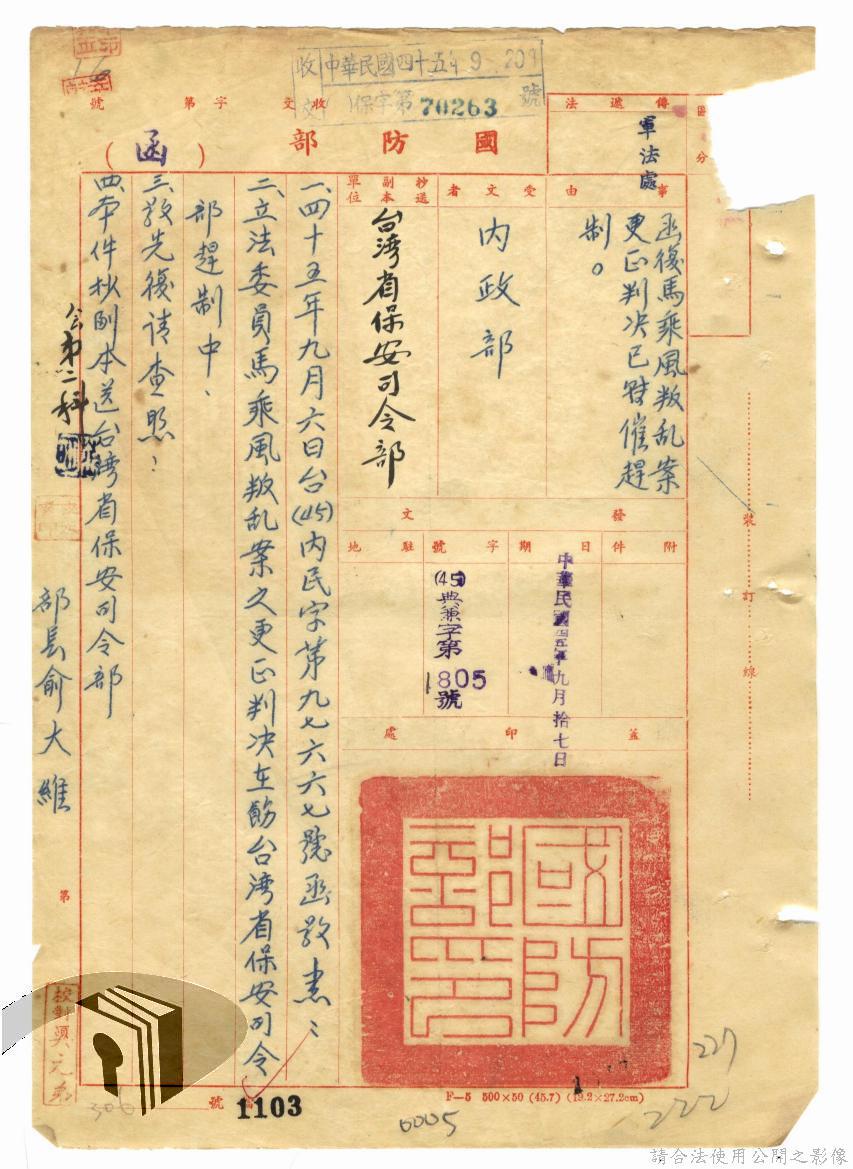 收文 中華民國四十五年9月20日
保字第70263號
收文字第 號
傳遞法
軍法處
區分
國防部(函)
事由
函復馬乘風叛乱案
更正判决已督催趕
制。
受文者
內政部
抄送副本單位
台湾省保安司令部
發文
附件
日期
中華民國四五年九月拾七日
字號
(45)典兼字第1805號
駐地
蓋印處
國防部印
一、四十五年九月六日台(45)內民字第九七六六七號函敬悉:
二、立法委員馬乘風叛乱案之更正判决在飭台湾省保安司令
部趕制中、
三、敬先復請查照:
四、本件抄副本送台湾省保安司令部
部長俞大維
裝訂線
第 號
1103
F—5 500×50 (45.7) (19.2×27.2cm)
0005
227
222
306
請合法使用公開之影像